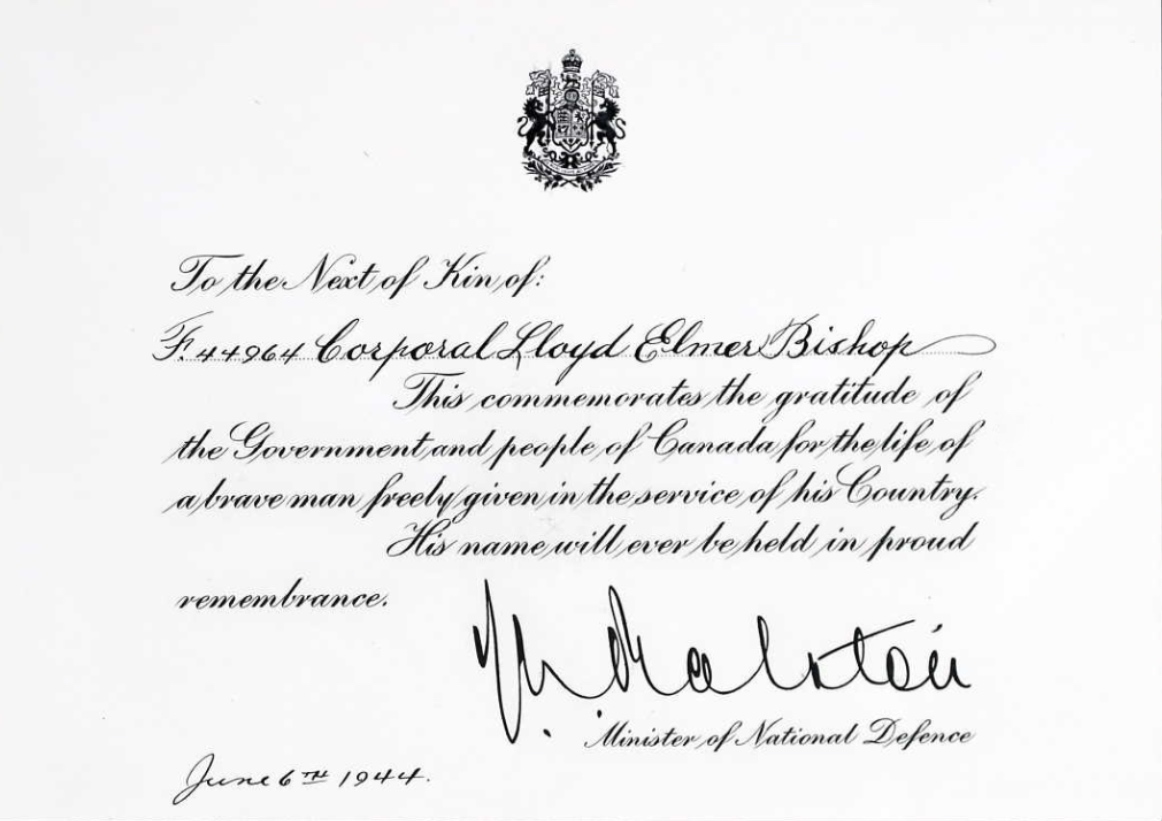 To the Next of Kin of:
F. 44964 Corporal Lloyd Elmer Bishop
This commemorates the gratitude of
the Government and people of Canada for the life of
a brave man freely given in the service of his Country.
His name will ever be held in proud
remembrance.
Ralston
Minister of National Defence
June 6TH 1944.